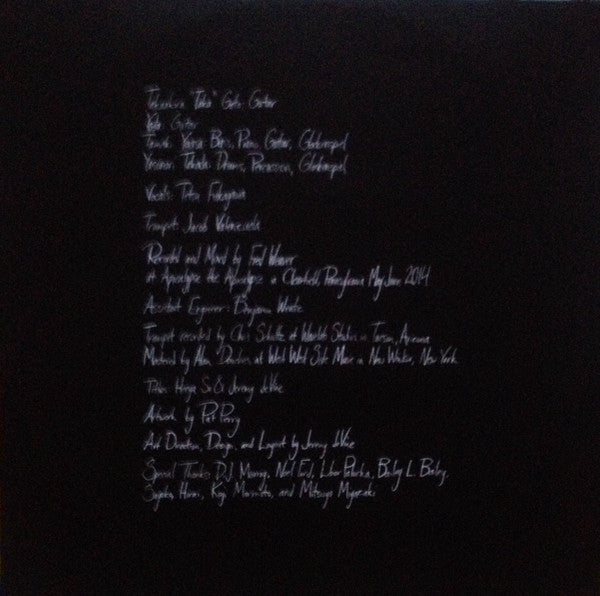 Takaakira "Taka" Goto: Guitar
Yoda: Guitar
Tamaki: Bass, Piano, Guitar, Glockenspiel
Yasunori Takada: Drums, Percussion, Glockenspiel
Vocals: Tetsu Fukagawa
Trumpet: Jacob Valenzuela
Recorded and Mixed by Fred Weaver
at Apocalypse the Apocalypse in Clearfield, Pennsylvania May-June 2014
Assistant Engineer: Benjamin
Trumpet recorded by Chris Schultz at Wavelab Studios in Tucson, Arizona
Mastered by Alan Douches at West West Side Music in New Windsor, New York
Titles: So & Jeremy deVine
Artwork by Pat Perry
Art Direction, Design, and Layout by Jeremy deVine
Special Thanks: D.J. Murray, Noel Ford, Libor L. Bailey,
Koji Morimoto, and Mitsuyo Miyazaki